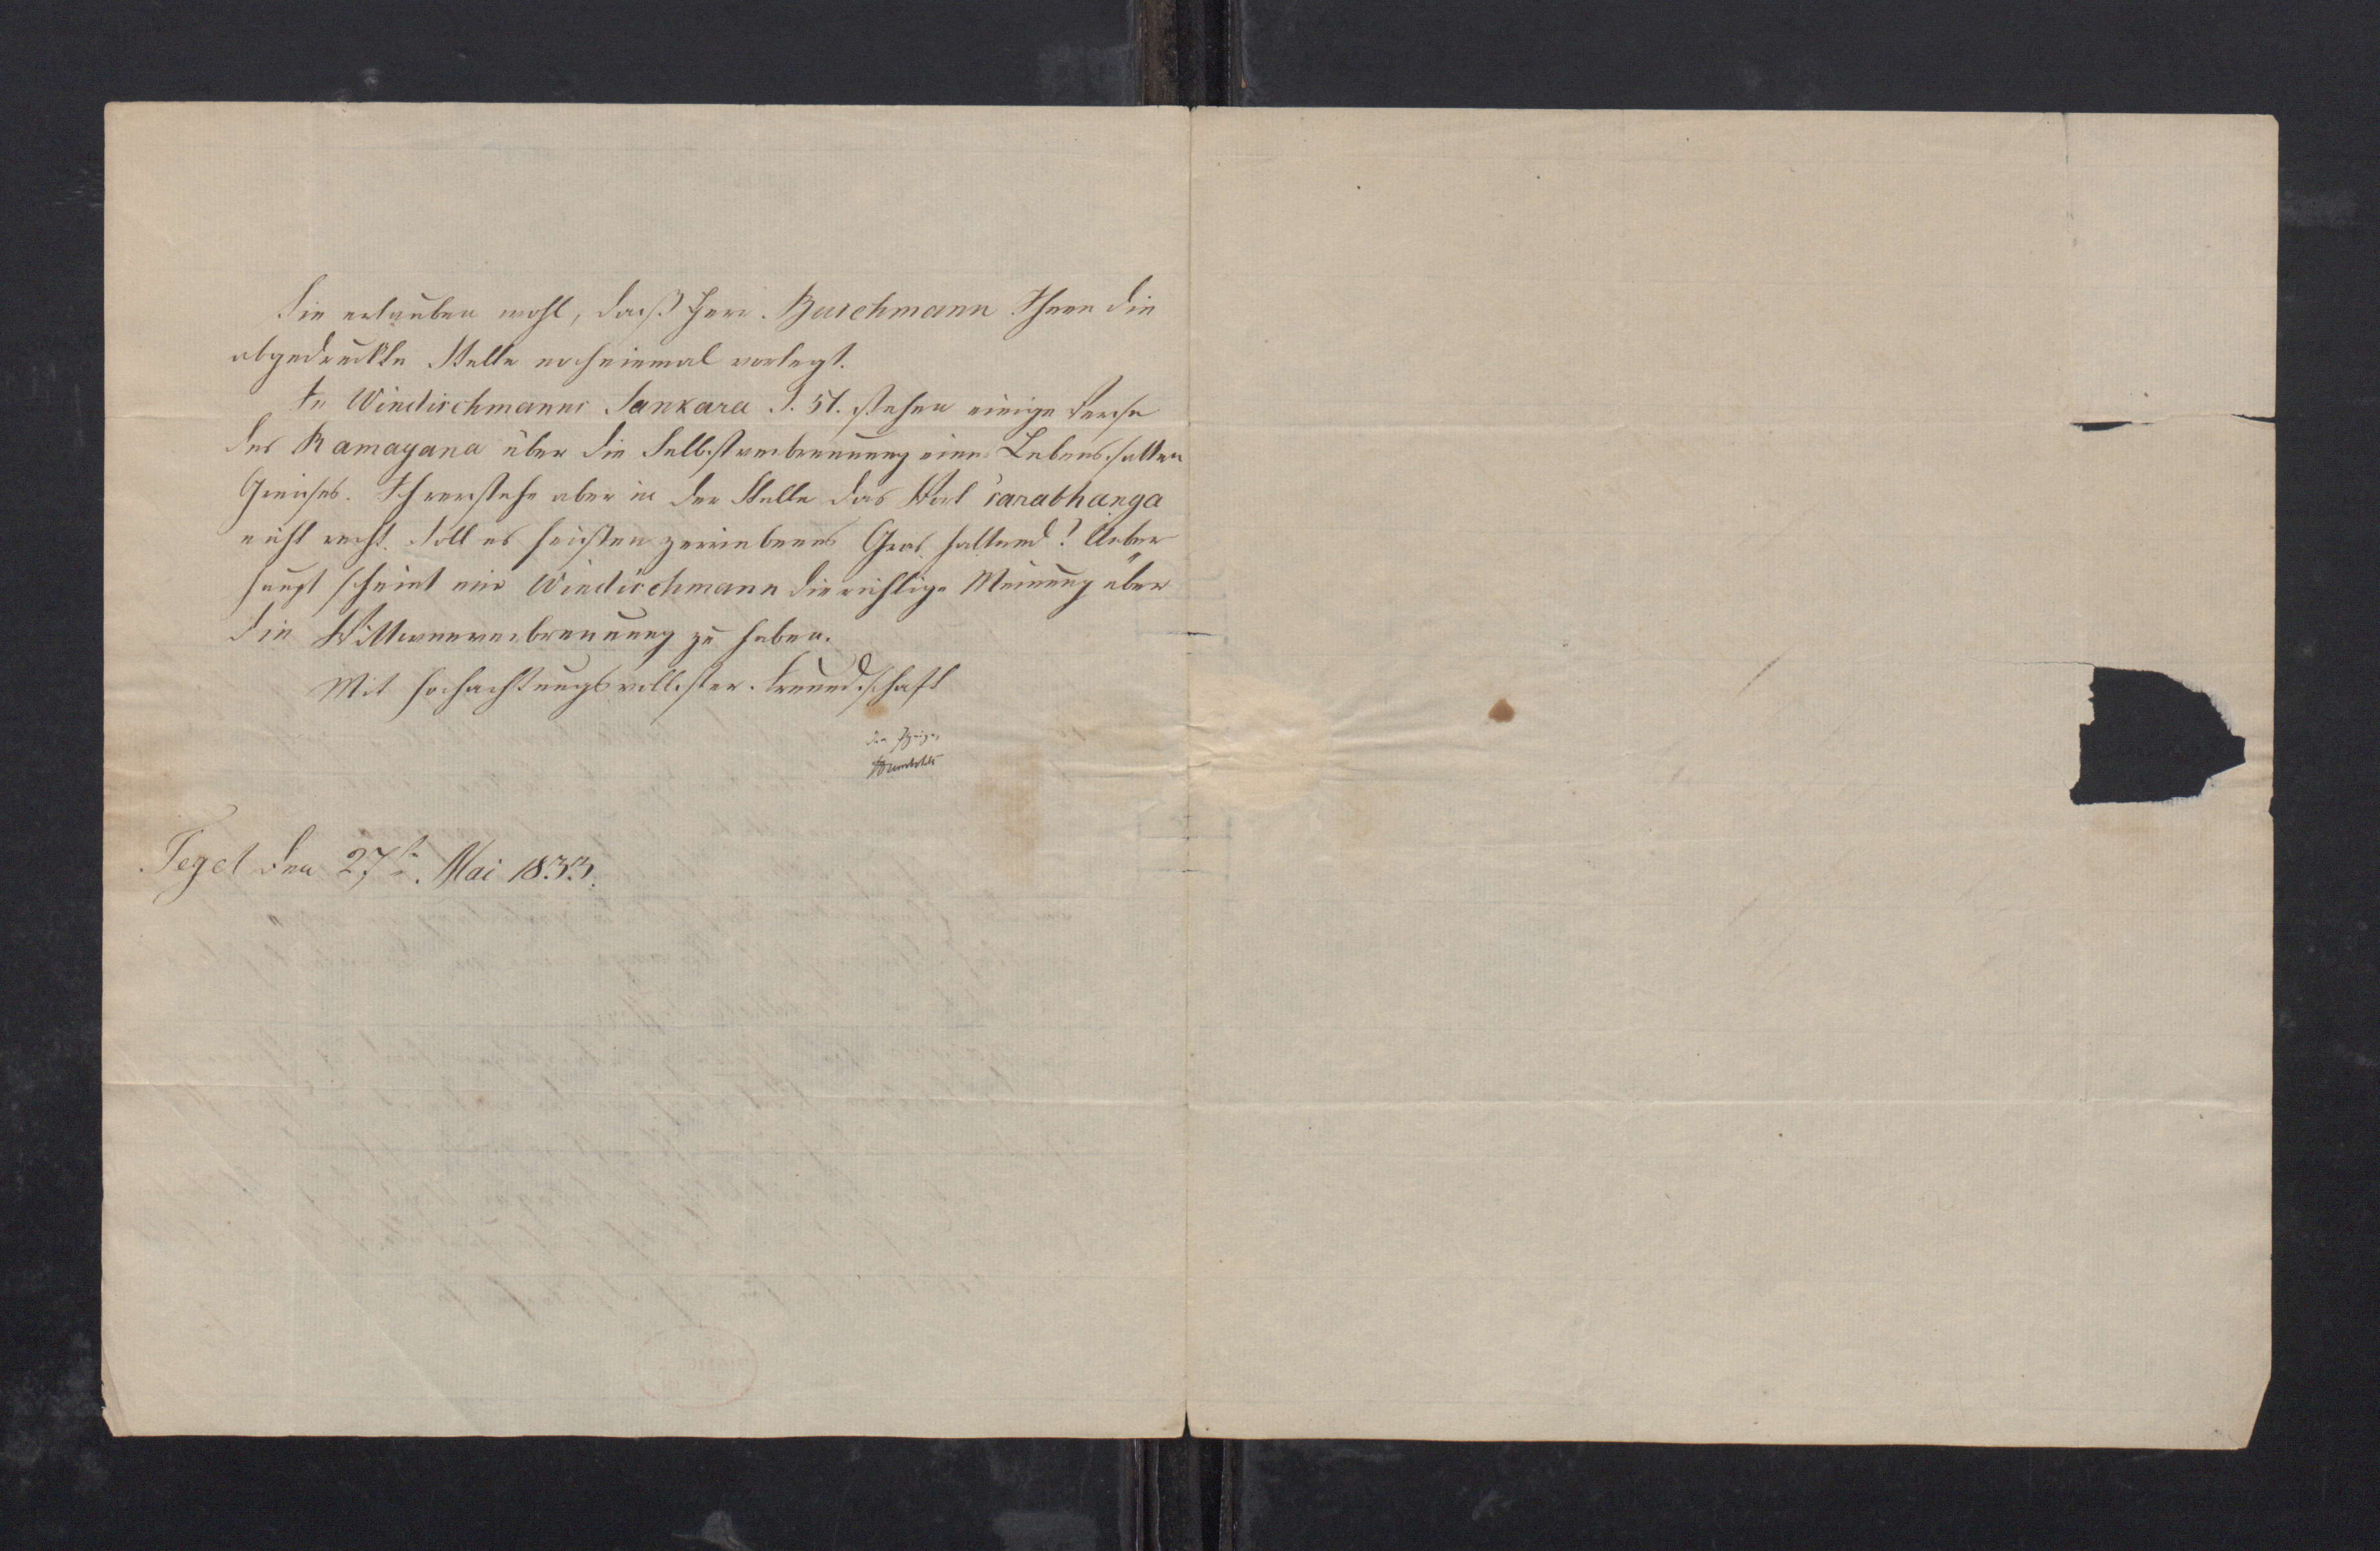 Sie erlauben wohl, daß Herr Buschmann Ihnen die
abgedruckte Stelle noch einmal vorlegt.
In Windischmanns Sankara S. 51. stehen einige Verse
des Ramayana über die Selbstverbrennung eines Lebenssatten
Greises. Ich verstehe aber in der Stelle das Wort sarabhanga
nicht recht. Soll es heißen zerriebenes Gras haltend? Ueber
haupt scheint mir Windischmann die richtige Meinung über
die Wittwenverbrennung zu haben.
Mit hochachtungsvollster Freundschaft
der Ihrige,
Humboldt
Tegel den 27st. Mai 1833.